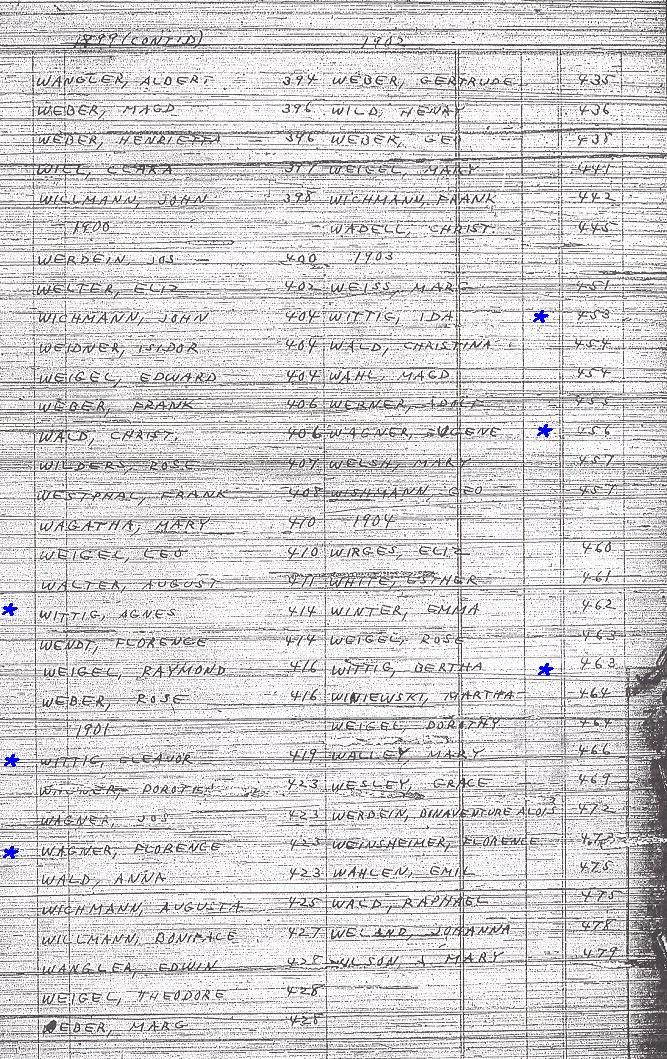 1899 (CONT'D)
WANGLER, ALBERT 394
WEBER, MAGD 396
WEBER, HENRIETTA 396
WILL, CLARA 397
WILLMANN, JOHN 398
1900
WERDEIN, JOS 400
WELTER, ELIZ 402
WICHMANN, JOHN 404
WEIDNER, ISIDOR 404
WEIGEL, EDWARD 404
WEBER, FRANK 406
WALD, CHRIST. 406
WILDERS, ROSE 407
WESTPHAL, FRANK 408
WAGATHA, MARY 410
WEIGEL, LEO 410
WALTER, AUGUST 411
* WITTIG, AGNES 414
WENDT, FLORENCE 414
WEIGEL, RAYMOND 416
WEBER, ROSE 416
1901
* WITTIG, ELEANOR 419
DOROTHEA 423
WAGNER, JOS 423
* WAGNER, FLORENCE 423
WALD, ANNA 423
WICHMANN, AUGUSTA 425
WILLMANN, BONIFACE 427
WANGLER, EDWIN 428
WEIGEL, THEODORE 428
WEBER, MARG 428
1902
WEBER, GERTRUDE 435
WILD, HENRY 436
WEBER, GEO 438
WEIGEL, MARY 441
WICHMANN, FRANK 442
WADELL, CHRIST. 445
1903
WEISS, MARG 451
WITTIG, IDA * 453
WALD, CHRISTINA 454
WAHL, MAGD 454
WERNER, ADOLF 455
WAGNER, EUGENE * 456
WELSH, MARY 457
WISHMANN, GEO 457
1904
WIRGES, ELIZ 460
WHITE, ESTHER 461
WINTER, EMMA 462
WEIGEL, ROSE 463
WITTIG, BERTHA * 463
WINIEWSKI, MARTHA 464
WEIGEL, DOROTHY 464
WALLEY, MARY 466
WESLEY, GRACE 469
WERDEIN, BINAVENTURE ALOIS 472
WEINSHEIMER, FLORENCE 473
WAHLEN, EMIL 475
WALD, RAPHAEL 475
WELAND, JOHANNA 478
MARY 479